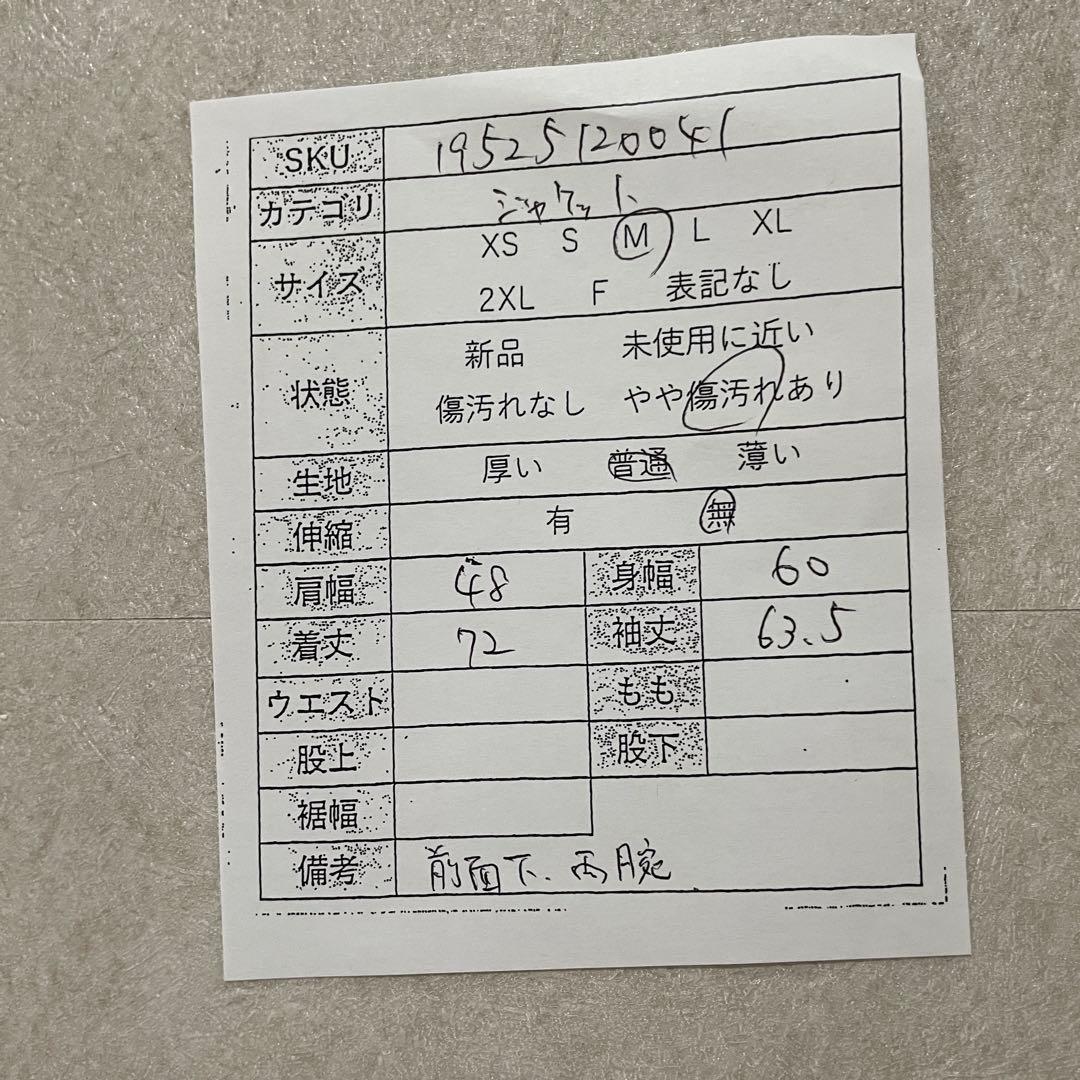 SKU 19525120041
カテゴリ ジャケット
サイズ XS S M L XL
2XL F 表記なし
状態 新品 未使用に近い
傷汚れなし やや傷汚れあり
生地 厚い 普通 薄い
伸縮 有 無
肩幅 48 身幅 60
着丈 72 袖丈 63.5
ウエスト もも
股上 股下
裾幅
備考 前面下、両腕